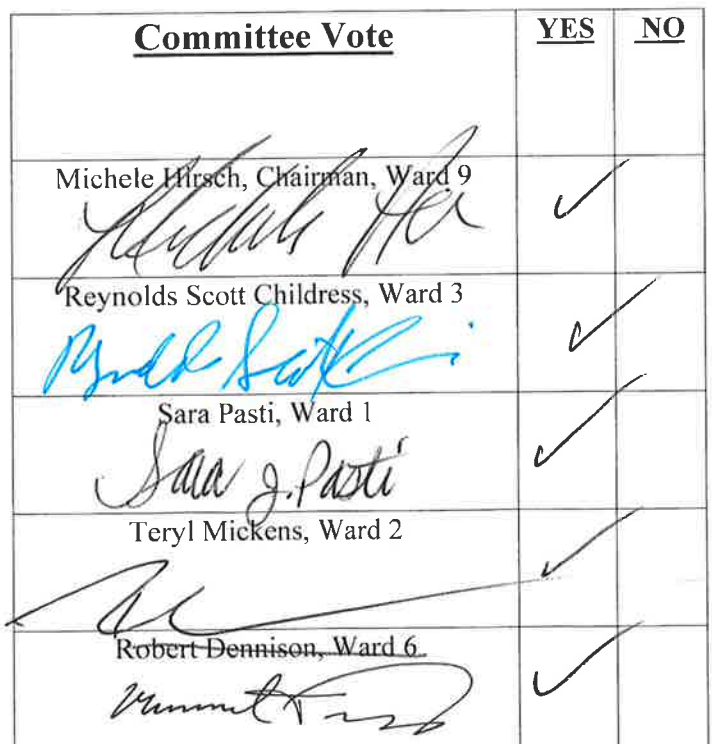 Committee Vote YES NO
Michele Hirsch, Chairman, Ward 9
✓
Reynolds Scott Childress, Ward 3
✓
Sara Pasti, Ward 1
Sara J. Pasti ✓
Teryl Mickens, Ward 2
✓
Robert Dennison, Ward 6
✓